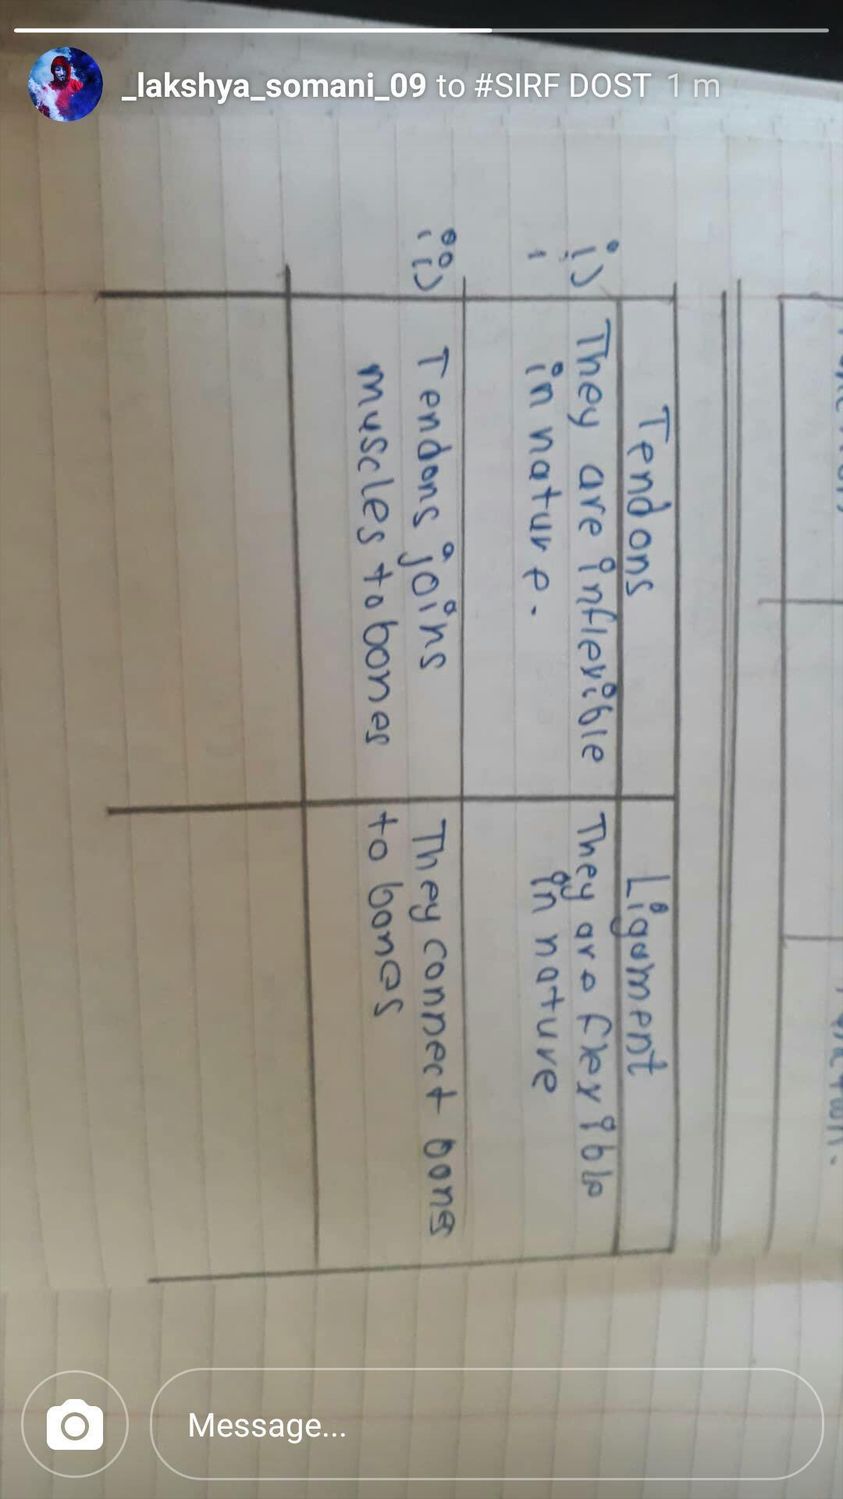 _lakshya_somani_09 to #SIRF DOST 1 m
Tendons
Ligament
i) They are inflexible
in nature.
They are flexible
in nature
ii) Tendons joins
muscles to bones
They connect bones
to bones
Message...